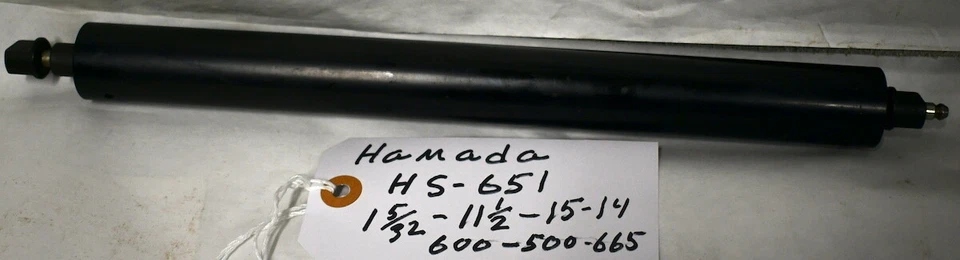 Hamada
HS-651
1 5/32 - 11 1/2 - 15-14
600-500-665